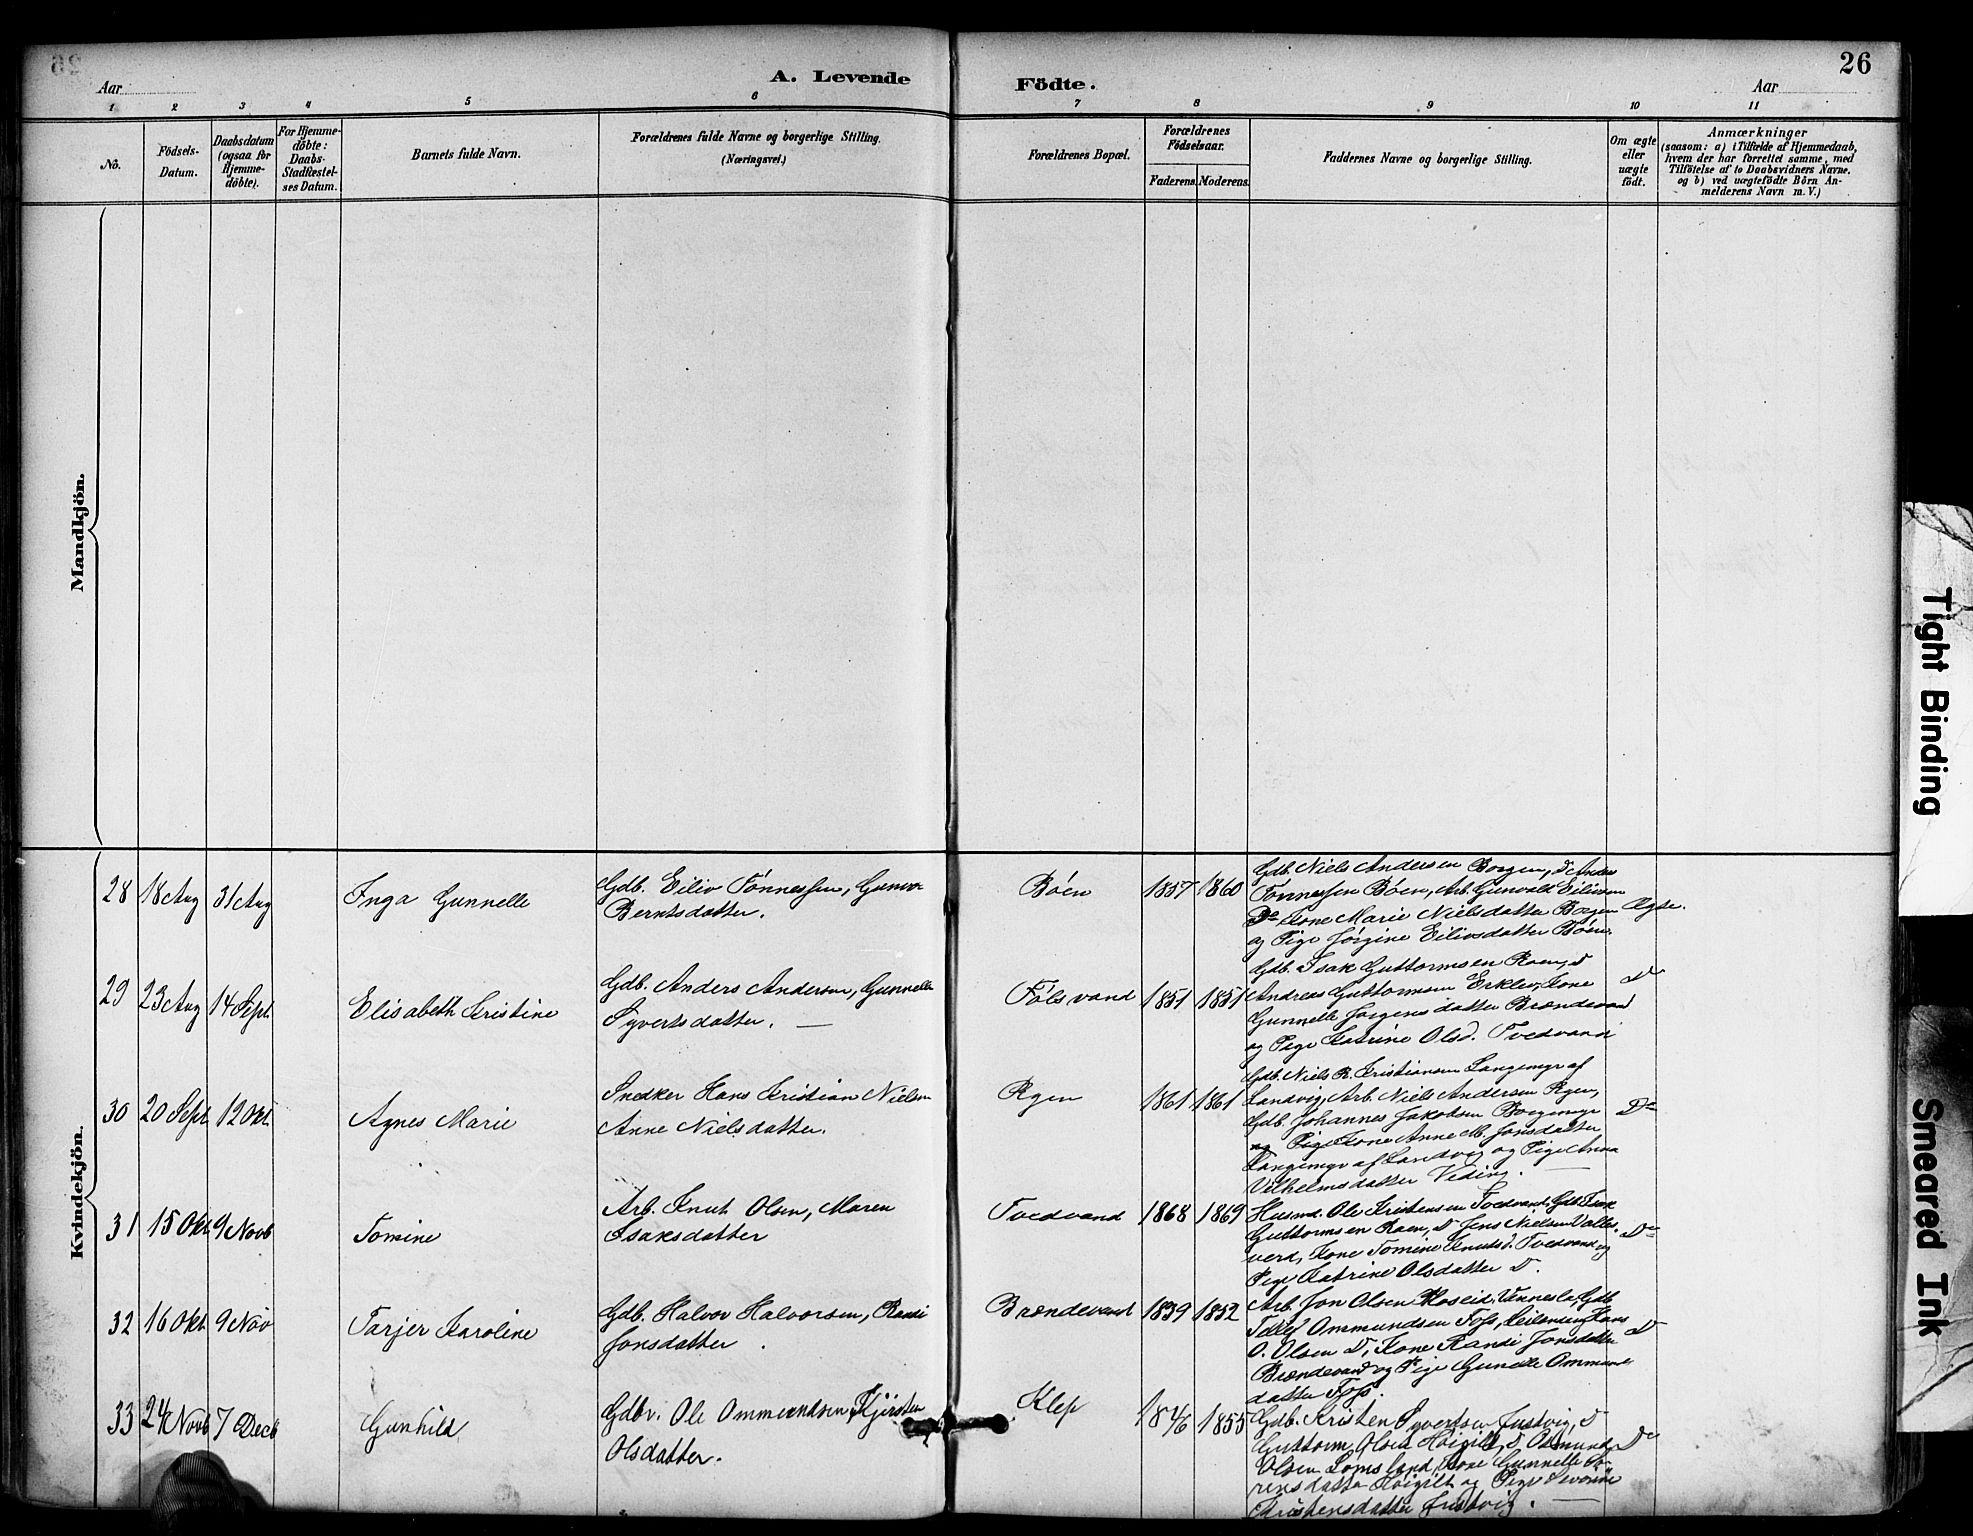 26
A. Levende Födte.
Aar
Aar
1 2 3 4 5 6 7 8 9 10 11
Nô.
Födsels-Datum.
Daabsdatum (ogsaa for Hjemme-döbte).
For Hjemme-döbte: Daabs-Stadfæstel-ses Datum.
Barnets fulde Navn.
Forældrenes fulde Navne og borgerlige Stilling. (Næringsvei.)
Forældrenes Bopæl.
Forældrenes Födselsaar.
Faderens. Moderens.
Faddernes Navne og borgerlige Stilling.
Om ægte eller uægte födt.
Anmærkninger
(saasom: a) i Tilfælde af Hjemmedaab,
hvem der har forrettet samme, med
Tilföielse af to Daabsvidners Navne.
og b) ved uægtefödte Börn An-
melderens Navn m. V.)
Mandkjön.
Kvindekjön.
28 18 Aug 31 Aug Inga Gunnelle
Gdb. Eiliv Tønnessen, Gunvor
Berntsdatter.
Bøen 1857 1860
Gdb. Niels Andersen Boegen, D. Anders
Tønnessen Bøen, Arb. Gunvald Eilivsen
Do Kone Marie Nielsdatter Boegen
og Pige Jørgine Eilivsdatter Bøen.
Ægte.
29 23 Aug 14 Sept. Elisabeth Kristine
Gdb. Anders Andersen, Gunnelle
Syvertsdatter.
Fôlsvand 1851 1851
Gdb. Isak Guttormsen Raen, D
Andreas Guttormsen Erklev, Kone
Gunnelle Jørgensdatter Brændevand
og Pige Katrine Olsd. Tvedvand
D
30 20 Sept 12 Okt. Agnes Marie
Snedker Hans Kristian Nielsen
Anne Nielsdatter.
Ægen 1861 1861
Gdb. Niels R. Kristiansen Langemyr af
Landvig, Arb. Niels Andersen Ægen,
Gdb. Johannes Jakobsen Boegemyr
og Pige Kone Anne M. Jonsdatter
Langemyr af Landvig og Pige Anna
Vilhelmsdatter Veding.
Do
31 15 Okt 9 Novb Tomine
Arb. Knut Olsen, Maren
Isaksdatter
Tvedvand 1868 1869
Husmd. Ole Kristensen Tvedvand, Gdb. Isak
Guttormsen Raen, D Jens Nielsen Valle-
verd, Kone Tomine Knutsd. Tvedvand og
Pige Katrine Olsdatter D.
Do
32 16 Okt 9 Nov Tarjer Karoline
Gdb. Halvor Halvorsen, Randi
Jonsdatter.
Brændevand 1839 1852
Arb. Jon Olsen Roseid, Vennesla, Gdb
Tellef Ommundsen Foss, Hans
O. Olsen D, Kone Randi Jonsdatter
Brændevand og Pige Gunelle Ommunds
datter Foss.
D
33 24 Novb 7 Decb Gunhild
Gdbr. Ole Ommundsen, Kjirsten
Olsdatter.
Klep 1846 1855
Gdb. Kristen Syvertsen Justvig, D
Guttorm Olsen Høigilt, D. Osmund
Olsen Lømsland, Kone Gunnelle Sø-
rensdatter Høigilt og Pige Severine
Kristensdatter Justvig.
Do
Tight Binding
Smeared Ink